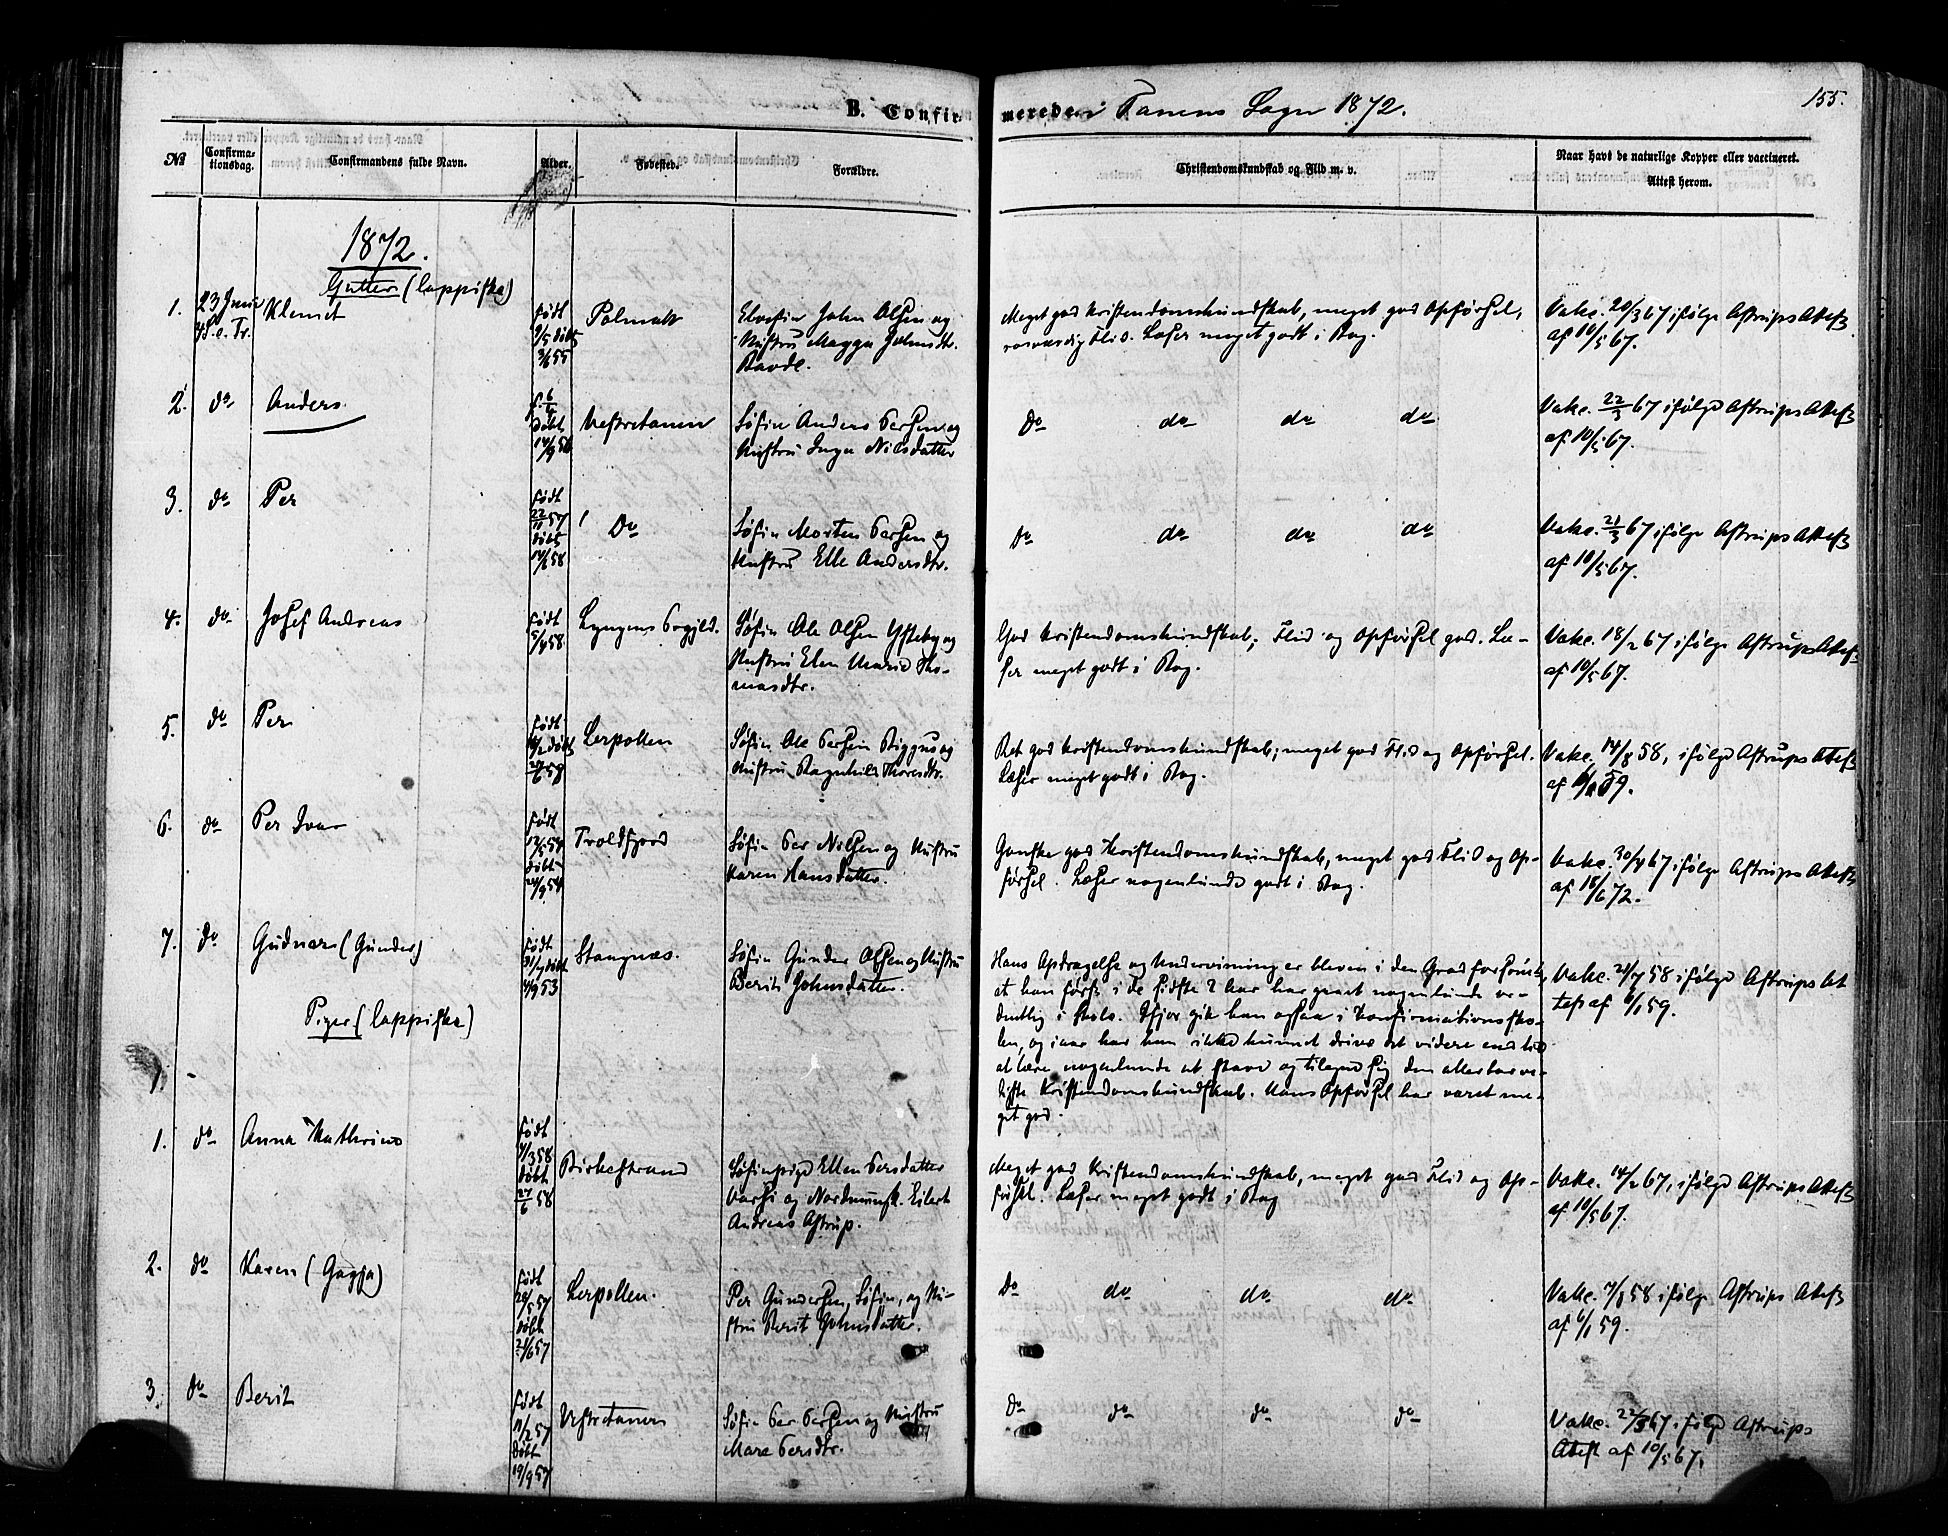 B. Confir-
merede i Tanens Sogn 1872.
155.
No
Confirma-
tionsdag.
Confirmandens fulde Navn.
Alder.
Fødested.
Forældre.
Christendomskundskab og Flid m. v.
Naar havt de naturlige Kopper eller vaccineret.
Attest herom.
1872.
Gutter (lappiske)
1.
23 Juni
4 S. e. Tr.
Klemet
Født
9/5 døbt
3/6 55
Polmak
Elvefin John Olsen og
Hustru Magga Johnsdtr.
Meget god Kristendomskundskab, meget god Opførsel,
rosværdig Flid. Læser meget godt i Bog.
Vakc. 20/3 67 ifølge Astrups Attest
af 10/5 67.
2.
do
Anders.
f. 6/4
døbt
14/9 56
Vestretanen
Søfin Anders Persen og
Hustru Inga Nilsdatter
Do do do do
Vakc. 22/3 67 ifølge Astrups Attest
af 10/5 67.
3.
do
Per
Født
22/11 57
døbt
14/2 58
Do
Søfin Morten Persen og
Hustru Elle Andersdtr.
Do do do do
Vakc. 21/3 67 ifølge Astrups Attest
af 10/5 67.
4.
do
Josef Andreas
Født
5/4 58
Lyngens Prgjld.
Søfin Ole Olsen Ysteby og
Hustru Elen Marie Tho-
masdtr.
God Kristendomskundskab; Flid og Opførsel god. Læ-
ser meget godt i Bog.
Vakc. 18/2 67 ifølge Astrups Attest
af 10/5 67.
5.
do
Per
Født
døbt
58
Lerpollen
Søfin Ole Persen Biggus og
Hustru Ragnhild Thoresdtr.
Ret god Kristendomskundskab; meget god Flid og Opførsel.
Læser meget godt i Bog.
Vakc. 14/8 58, ifølge Astrups Attest
af 6/1 59.
6.
do
Per Ivar
Født
12/5 54
døbt
24/9 54
Troldfjord
Søfin Per Nilsen og Hustru
Karen Hansdatter.
Ganske god Kristendomskundskab, meget god Flid og Op-
førsel. Læser nogenlunde godt i Bog.
Vakc. 30/4 67 ifølge Astrups Attest
af 18/6 72.
7.
do
Gudnar (Gunder)
Født
31/7 døbt
4/9 53
Stangnæs.
Søfin Gunder Olsen og Hustru
Berit Johnsdatter.
Hans Opdragelse og Undervisning er bleven i den Grad forsømt,
at han først i de sidste 2 Aar har gaaet nogenlunde or-
dentlig i Skole. Ifjor gik han ogsaa i Konfirmationssko-
len, og iaar har han ikke kunnet drive det videre end til
at lære nogenlunde at stave og tilegne sig den allertarve-
ligste Kristendomskundskab. Hans Opførsel har været me-
get god.
Vakc. 24/7 58 ifølge Astrups At
test af 6/1 59.
Piger (lappiske)
1.
do
Anna Kathrine
Født
4/3 58
døbt
27/6 58
Birkestrand
Søfinpige Ellen Persdatter
Varsi og Nordmandsk. Eilert
Andreas Astrup.
Meget god Kristendomskundskab, meget god Flid og Op-
førsel. Læser meget godt i Bog
Vakc. 14/2 67, ifølge Astrups Attest
af 10/5 67.
2.
do
Karen (Gagja)
Født
20/5 57
døbt
21/6 57
Lerpollen.
Per Gundersen, Søfin, og Hu-
stru Berit Johnsdatter.
Do do do do
Vakc. 7/8 58 ifølge Astrups Attest
af 6/1 59.
3.
do
Berit
Født
11/2 57
døbt
19/9 57
Vestretanen
Søfin Per Persen og Hustru
Mara Persdtr.
Do do do do
Vakc. 22/3 67 ifølge Astrups
Attest af 10/5 67.